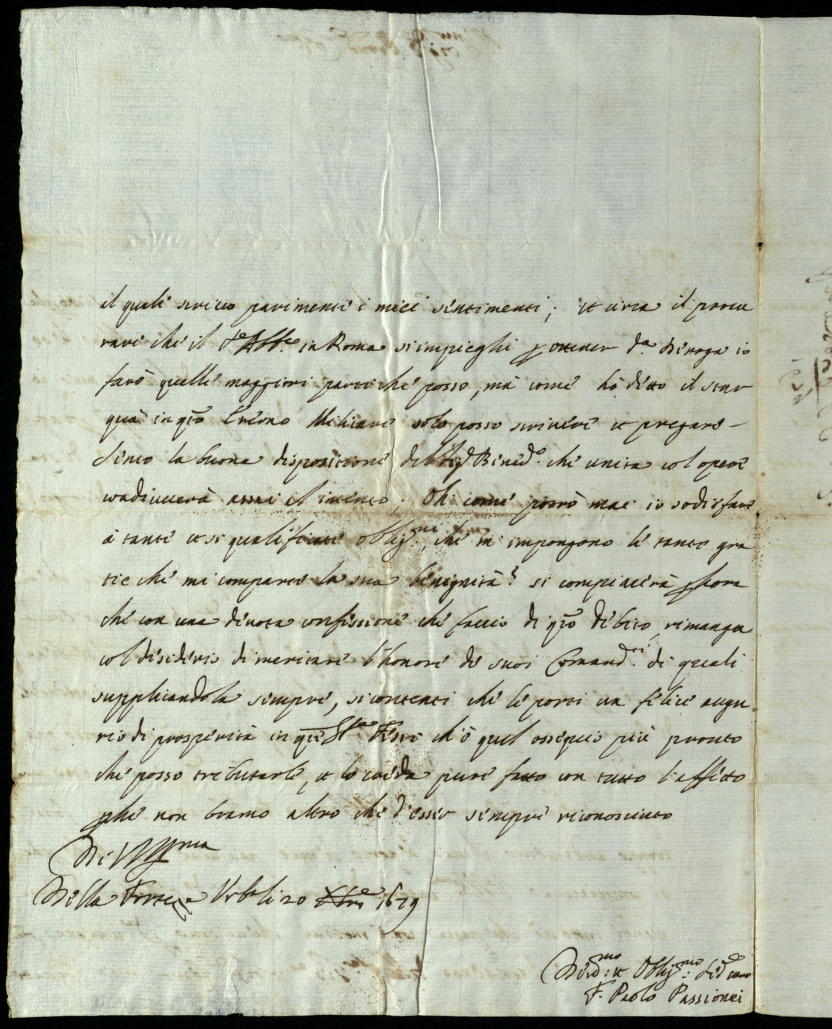 il quale scrivo parimente i miei sentimenti; et circa il procu
rare che il Sr Abbe in Roma s'impieghi p ottener da Deroga io
farò quelle maggiori parti che posso, mà come hò detto il star
quà in qto Eremo Militare solo posso scrivere et pregare
Sento la buona dispositione del Sigr Bened.o che unita col opere
condurrerà assai il intento. Oh come potrò mai io sodisfare
à tante et si qualificate obligni, che m'impongono le tante gra
tie che mi comparte la sua benignità? si compiacerà p hora
che con una devota confessione che faccio di qto debito, rimanga
col desiderio di meritare l'honore de suoi Comandti di quali
supplicandola sempre, si contenti che le porti un felice augu
rio di prosperità in qte Ste Feste cò quel ossequio più pronto
che posso tributarle, et lo creda pure fatto con tutto l'affetto
p che non bramo altro che d'esser sempre riconosciuto
Di V S Ill ma
Della Fortezza Urb. li 20 Xbre 1679
Devmo: et Obligmo: Serre vero
F. Paolo Passionei